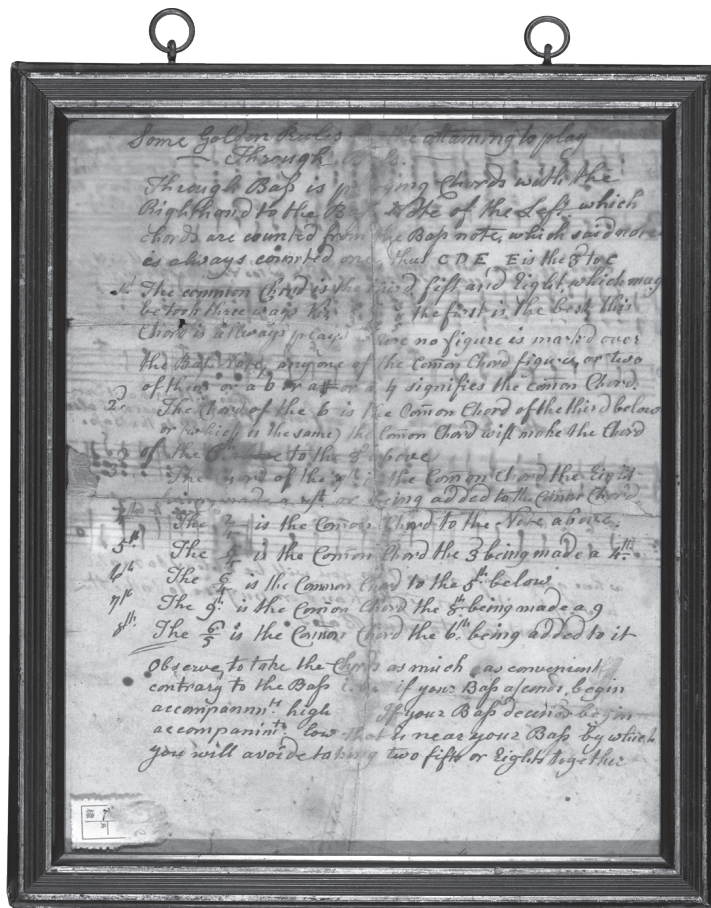 Some Golden Rules attaining to play
Through
Through Baſs is Chords with the
Righthand to the Note of the Left which
Chords are counted from the Baſs note, which said note
is always counted one, thus C D E E is the 3 to C
1st The common Chord is the third fift and Eight which may
be took three ways the first is the best this
Chord is allways play'd where no figure is mark'd over
the Baſs Note, any one of the Com̄on Chord figures, or two
of them or a b or a # or a ♮ signifies the com̄on Chord.
2d The Chord of the 6 is the Com̄on Chord of the third below
or which is the same the Com̄on Chord will make the Chord
of the to the 8 above
3 The Chord of the is the Com̄on Chord the Eight
being made a being added to the Com̄on Chord
4 The is the Com̄on Chord to the Note above.
5th The is the Com̄on Chord the 3 being made a 4th
6th The 6/4 is the Common Chord to the 5th below
7th The 9th is the Com̄on Chord the 8th being made a 9
8th The 6/5 is the Com̄on Chord the 6th being added to it
Observe to take the Chords as much as convenient
contrary to the Baſs i.e. if your Baſs aſcends, begin
accompanimt high If your Baſs decend begin
accompanimt low that is near your Baſs by which
you will avoide taking two fifts or Eights together